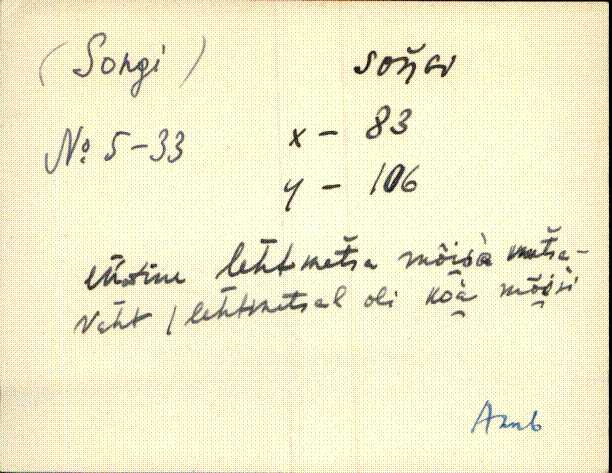 (Songi) soŋ̆Gi
No. 5-33
x - 83
y - 106
lehtmetsa mõisa metsa-
vaht / lehtmetsal oli koa mõisi
Amb